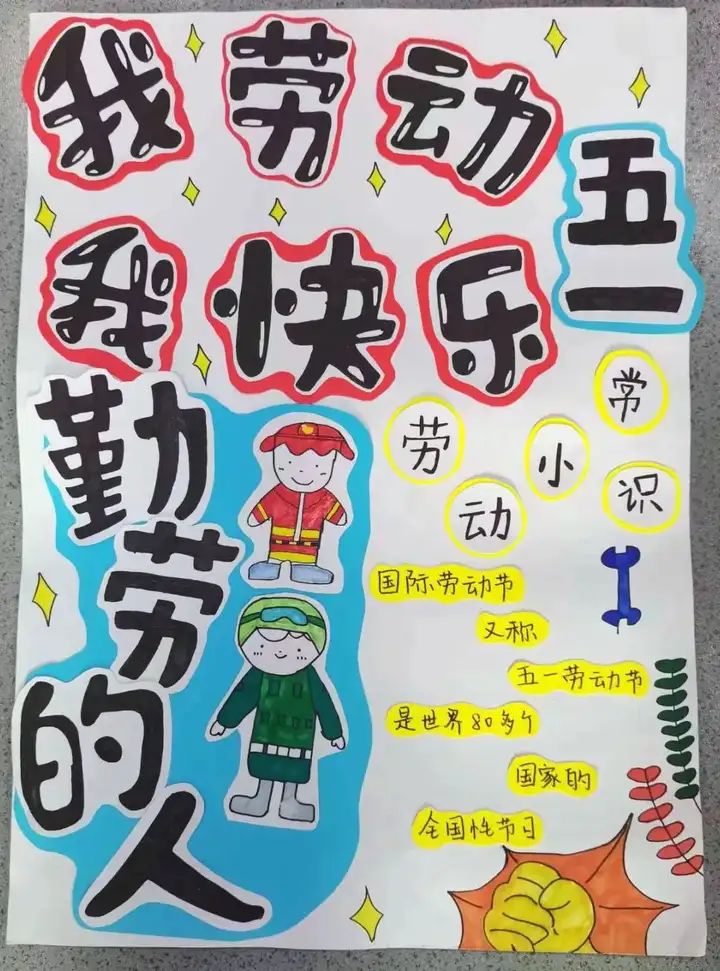 我劳动
我快乐
五一
勤劳的人
劳动小常识
国际劳动节
又称
五一劳动节
是世界80多个
国家的
全国性节日